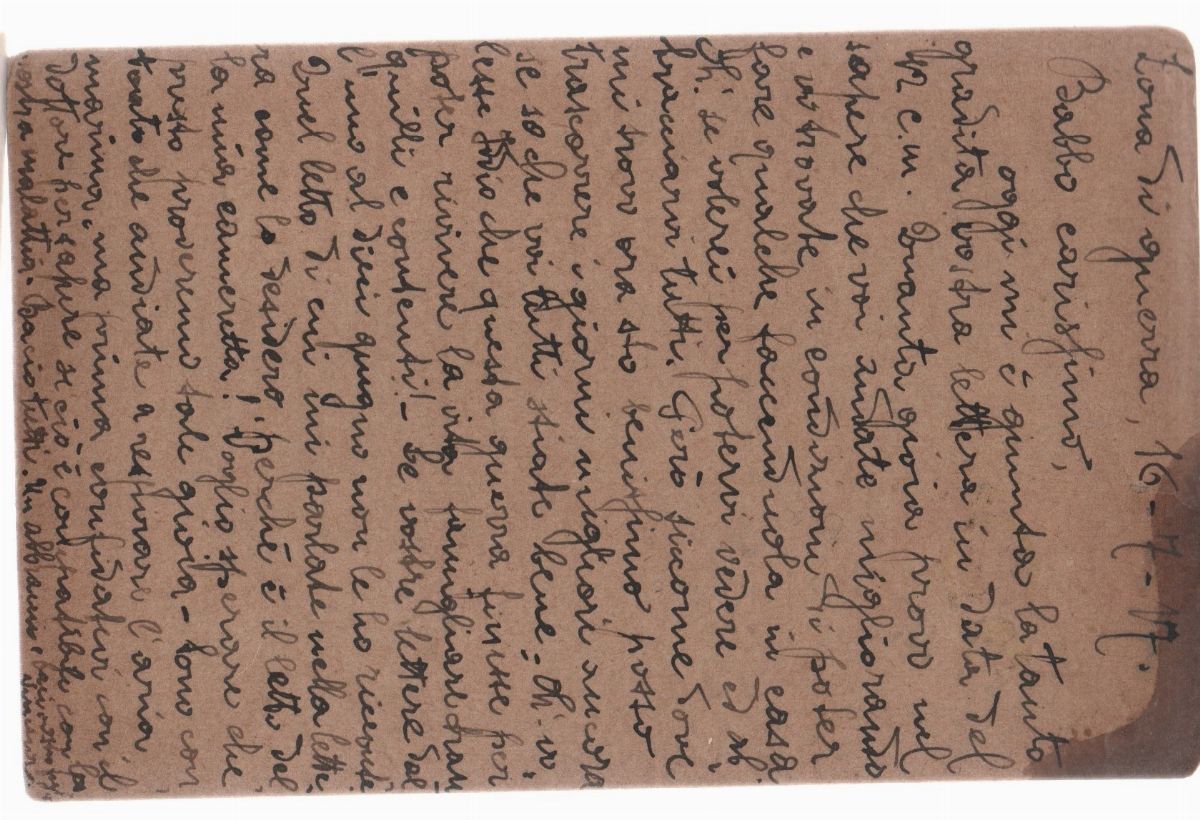 Zona di guerra, 16-7-17.
Babbo carissimo,
oggi mi è giunta la tanto
gradita vostra lettera in data del
12 c.m. Quanta gioia provo nel
sapere che voi andate migliorando
e vi trovate in condizioni di poter
fare qualche faccenduola in casa
Oh! se volerei per potervi vedere ed ab-
bracciarvi tutti. Però siccome dove
mi trovo ora sto benissimo posso
trascorrere i giorni migliori ancora
se so che voi tutti stiate bene. Oh! vo-
lesse Iddio che questa guerra finisse per
poter rivivere la vita famigliare tran
quilli e contenti! - Le vostre lettere dal
l'uno al dieci giugno non le ho ricevute
Quel letto di cui mi parlate nella lette-
ra come lo desidero! Perchè è il letto del
la mia cameretta! Voglio sperare che
presto proveremo tale gioia - Sono con
tento che andiate a respirare l'aria
marina, ma prima confidatevi con il
dottore per sapere se ciò è compatibile con la
vostra malattia. Bacio tutti. Un abbraccio,